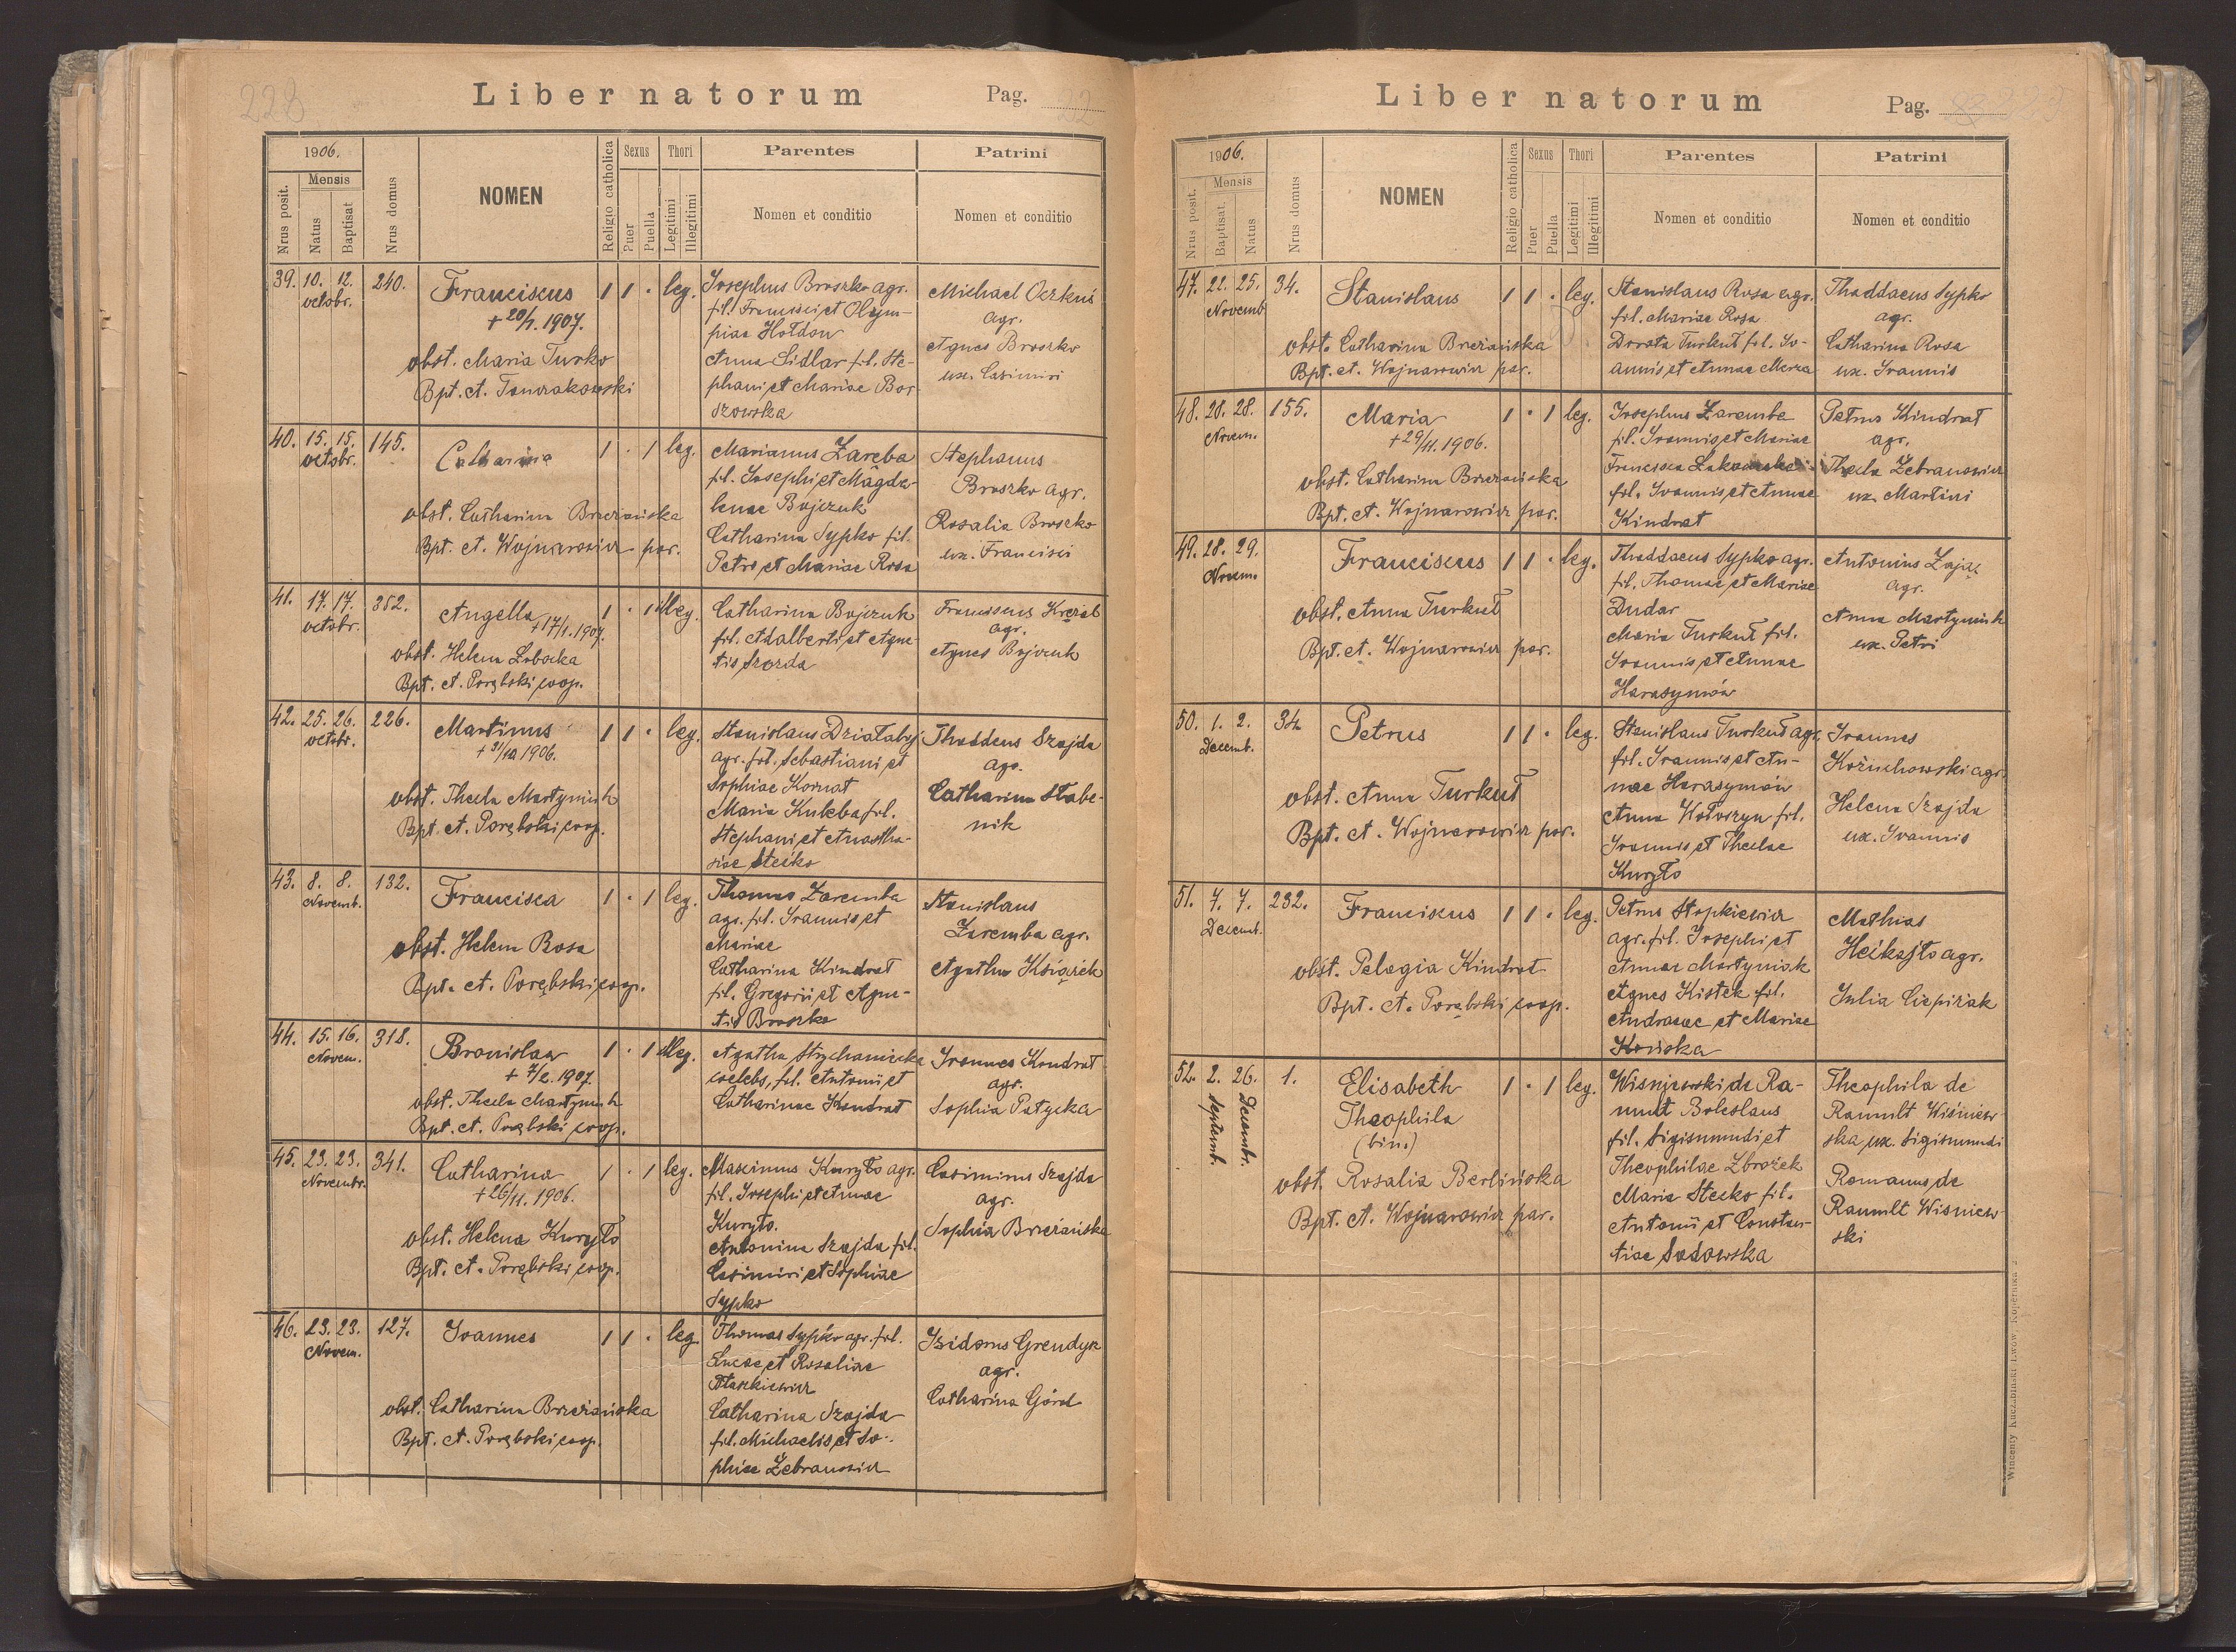 228
Liber natorum
Pag. 22
1906.
Mensis
Nrus posit.
Natus
Baptisat
Nrus domus
NOMEN
Religio catholica
Sexus
Puer
Puella
Thori
Legitimi
Illegitimi
Parentes
Nomen et conditio
Patrini
Nomen et conditio
39. 10. 12. octobr. 240.
Franciscus 1 1 · leg.
+ 20/1. 1907.
obst. Maria Turko
Bpt. A.
Josephus Broszko agr.
fil. Francisci et Olym-
piae Hołdow
Anna Sidlar fil. Ste-
phani et Mariae Bor-
szowska
Michael
agr.
Agnes Broszko
ux. Casimiri
40. 15. 15. octobr. 145.
Catharina 1 · 1 leg.
obst. Catharina Brzezańska
Bpt. A. Wojnarowicz par.
Marianus Zaręba
fil. Josephi et Magda-
lenae Bojczuk
Catharina Sypko fil.
Petri et Mariae Rosa
Stephanus
Broszko agr.
Rosalia Broszko
ux. Francisci
41. 17. 17. octobr. 352.
Angella 1 · 1 illeg.
+ 17/1. 1907.
obst. Helena
Bpt. A. Porębski coop.
Catharina Bojczuk
fil. Adalberti et Agne-
tis
Franciscus
agr.
Agnes Bojczuk
42. 25. 26. octobr. 226.
Martinus 1 1 · leg.
+ 31/10 1906.
obst. Thecla Martyniuk
Bpt. A. Porębski coop.
Stanislaus
agr. fil. Sebastiani et
Sophiae Kornat
Maria Kuleba fil.
Stephani et Anastha-
siae Stecko
Thaddeus Szajda
agr.
Catharina Stabe-
nik
43. 8. 8. Novemb. 132.
Francisca 1 · 1 leg.
obst. Helena Rosa
Bpt. A. Porębski coop.
Thomas Zaremba
agr. fil. Ioannis et
Mariae
Catharina Kindrat
fil. Gregorii et Agne-
tis Broszko
Stanislaus
Zaremba agr.
Agatha Książek
44. 15. 16. Novem. 318.
Bronislaw 1 · 1 illeg.
+ 7/2. 1907.
obst. Thecla Martyniuk
Bpt. A. Porębski coop.
Agatha
coelebs, fil. Antonii et
Catharinae Kondrat
Ioannes Kondrat
agr.
Sophia Patycka
45. 23. 23. Novembr. 341.
Catharina 1 · 1 leg.
+ 26/11. 1906.
obst. Helena Kuryło
Bpt. A. Porębski coop.
Maximus Kuryło agr.
fil. Josephi et Annae
Kuryło.
Antonina Szajda fil.
Casimiri et Sophiae
Sypko
Casimirus Szajda
agr.
Sophia Brzezańska
46. 23. 23. Novem. 127.
Ioannes 1 1 · leg.
obst. Catharina Brzezańska
Bpt. A. Porębski coop.
Thomas Sypko agr. fil.
Lucae et Rosaliae
Staszkiewicz
Catharina Szajda
fil. Michaelis et So-
phiae Zebranowicz
Izidorus Grendys
agr.
Catharina Górd
Liber natorum
Pag.
1906.
Mensis
Nrus posit.
Baptisat.
Natus
Nrus domus
NOMEN
Religio catholica
Sexus
Puer
Puella
Thori
Legitimi
Illegitimi
Parentes
Nomen et conditio
Patrini
Nomen et conditio
47. 22. 25. Novemb 34.
Stanislaus 1 1 · leg.
obst. Catharina Brzezańska
Bpt. A. Wojnarowicz par.
Stanislaus Rosa agr.
fil. Mariae Rosa
Dorota Turkuł fil. Io-
annis et Annae
Thaddaeus Sypko
agr.
Catharina Rosa
ux. Ioannis
48. 28. 28. Novem. 155.
Maria 1 · 1 leg.
+ 29/11. 1906.
obst. Catharina Brzezańska
Bpt. A. Wojnarowicz par.
Josephus Zaremba
fil. Ioannis et Mariae
Francisca
fil. Ioannis et Annae
Kindrat
Petrus Kindrat
agr.
Thecla Zebranowicz
ux. Martini
49. 28. 29. Novem.
Franciscus 1 1 · leg.
obst. Anna Turkuł
Bpt. A. Wojnarowicz par.
Thaddaeus Sypko agr.
fil. Thomae et Mariae
Dudar
Maria Turkuł fil.
Ioannis et Annae
Harasymów
Antonius Zając
agr.
Anna Martyniuk
ux. Petri
50. 1. 2. Decemb. 34
Petrus 1 1 · leg.
obst. Anna Turkuł
Bpt. A. Wojnarowicz par.
Stanislaus Turkuł agr.
fil. Ioannis et An-
nae Harasymów
Anna Wołoszyn fil.
Ioannis et Theclae
Kuryło
Ioannes
Kożuchowski agr.
Helena Szajda
ux. Ioannis
51. 7. 7. Decemb. 232.
Franciscus 1 1 · leg.
obst. Pelagia Kindrat
Bpt. A. Porębski coop.
Petrus Stopkiewicz
agr. fil. Josephi et
Annae Martyniak
Agnes Kistek fil.
Andraeae et Mariae
Końska
Mathias
agr.
Julia Ciepiżak
52. 2. Septemb. 26. Decembr. 1.
Elisabeth 1 · 1 leg.
Theophila
(bin.)
obst. Rosalia Berlińska
Bpt. A. Wojnarowicz par.
Wiśniewski de Ra-
mult Boleslaus
fil. Sigismundi et
Theophilae Zbrożek
Maria Stecko fil.
Antonii et Constan-
tiae Sadowska
Theophila de
Ramult Wiśniew-
ska ux. Sigismundi
Romanus de
Ramult Wiśniew-
ski
Wincenty Kuczabiński Lwów, Kopernika 2.